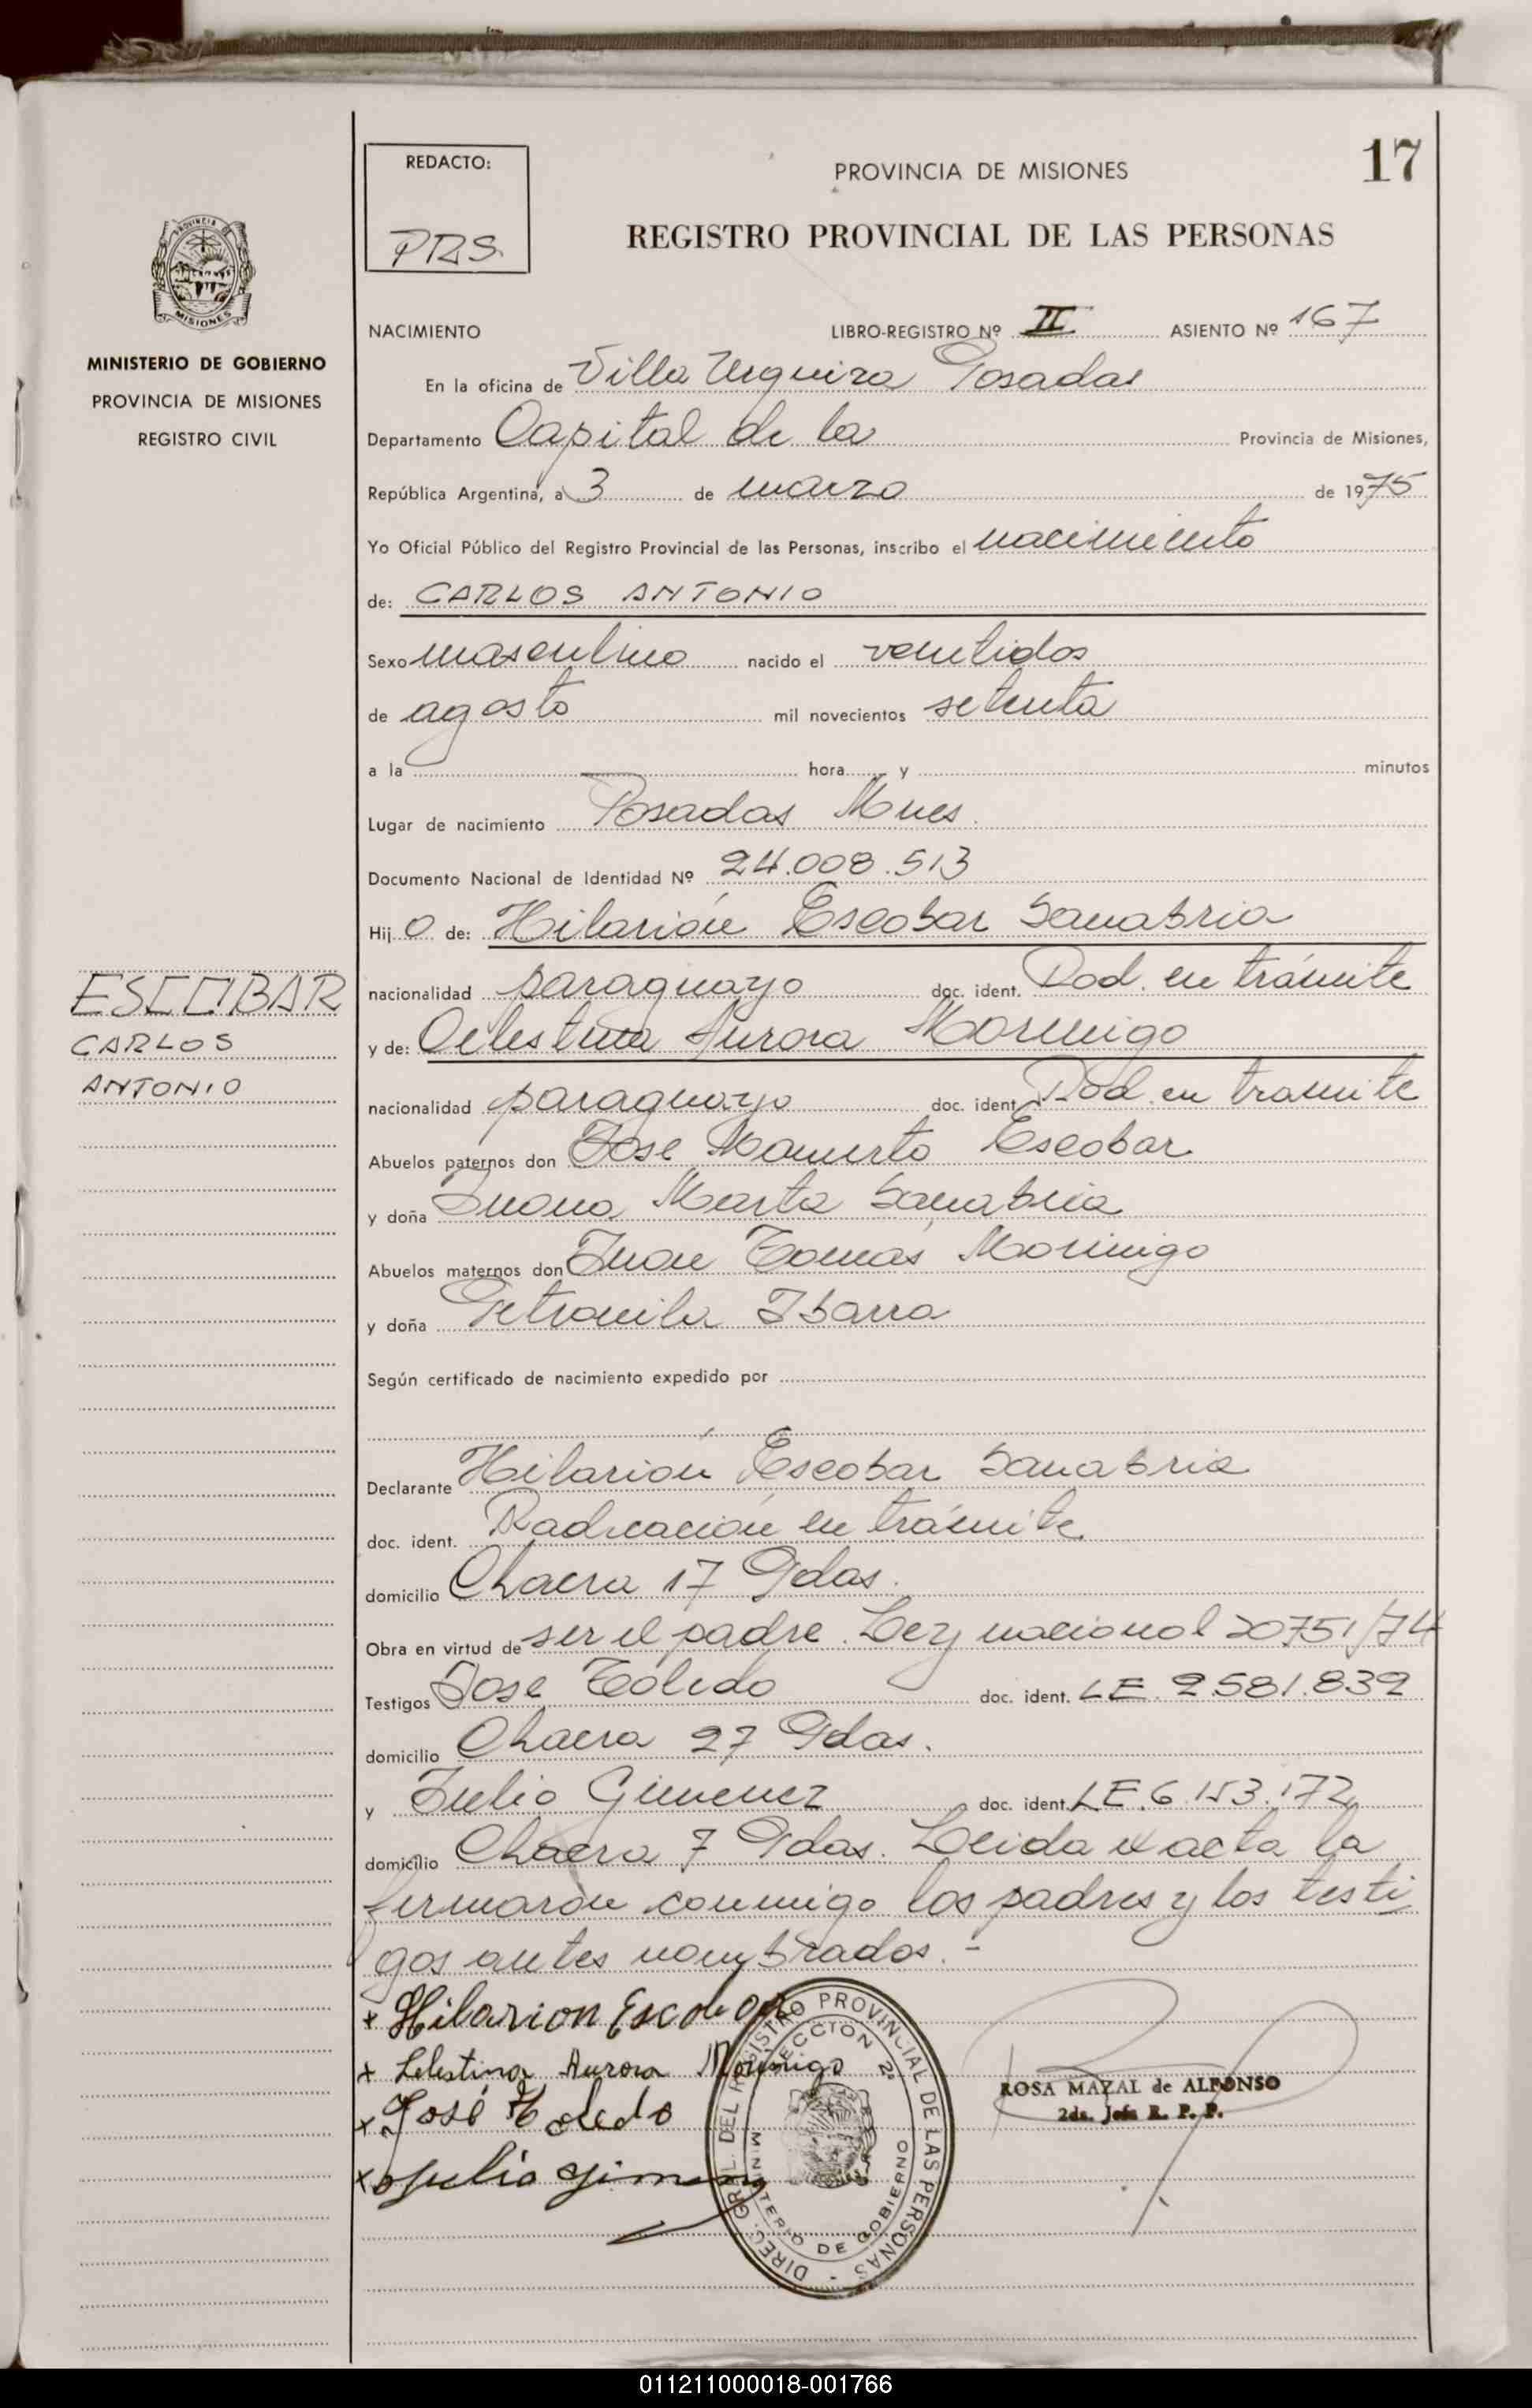 17
REDACTO:
PRS.
PROVINCIA DE MISIONES
REGISTRO PROVINCIAL DE LAS PERSONAS
PROVINCIA DE
MISIONES
MINISTERIO DE GOBIERNO
PROVINCIA DE MISIONES
REGISTRO CIVIL
NACIMIENTO LIBRO-REGISTRO Nº II ASIENTO Nº 167
En la oficina de Villa Urquiza Posadas
Departamento Capital de la Provincia de Misiones,
República Argentina, a 3 de marzo de 1975
Yo Oficial Público del Registro Provincial de las Personas, inscribo el nacimiento
de: CARLOS ANTONIO
Sexo masculino nacido el veintidos
de agosto mil novecientos setenta
a la hora y minutos
Lugar de nacimiento Posadas Mnes.
Documento Nacional de Identidad Nº 24.008.513
Hij o de: Hilarión Escobar Sanabria
nacionalidad paraguayo doc. ident. Rad. en trámite
y de: Celestina Aurora Morinigo
nacionalidad paraguayo doc. ident. Rad. en tramite
Abuelos paternos don Jose Mamerto Escobar
y doña Juana Marta Sanabria
Abuelos maternos don Juan Tomás Morinigo
y doña Petronila Ibarra
Según certificado de nacimiento expedido por
Declarante Hilarión Escobar Sanabria
doc. ident. Radicación en trámite
domicilio Chacra 17 Pdas.
Obra en virtud de ser el padre. Ley nacional 20751/74
Testigos Jose Toledo doc. ident. LE. 2.581.832
domicilio Chacra 27 Pdas.
y Julio Gimenez doc. ident. LE. 6.153.172
domicilio Chacra 7 Pdas. Leida el acta la
firmaron conmigo los padres y los testi
gos antes nombrados.-
ESCOBAR
CARLOS
ANTONIO
x Hilarion Escobar
x Celestina Aurora Morinigo
x José Toledo
x Julio Gimenez
DIREC. GRAL. DEL REGISTRO PROVINCIAL DE LAS PERSONAS -
SECCION 2ª
MINISTERIO DE GOBIERNO
ROSA MAZAL de ALFONSO
2da. Jefa R. P. P.
011211000018-001766